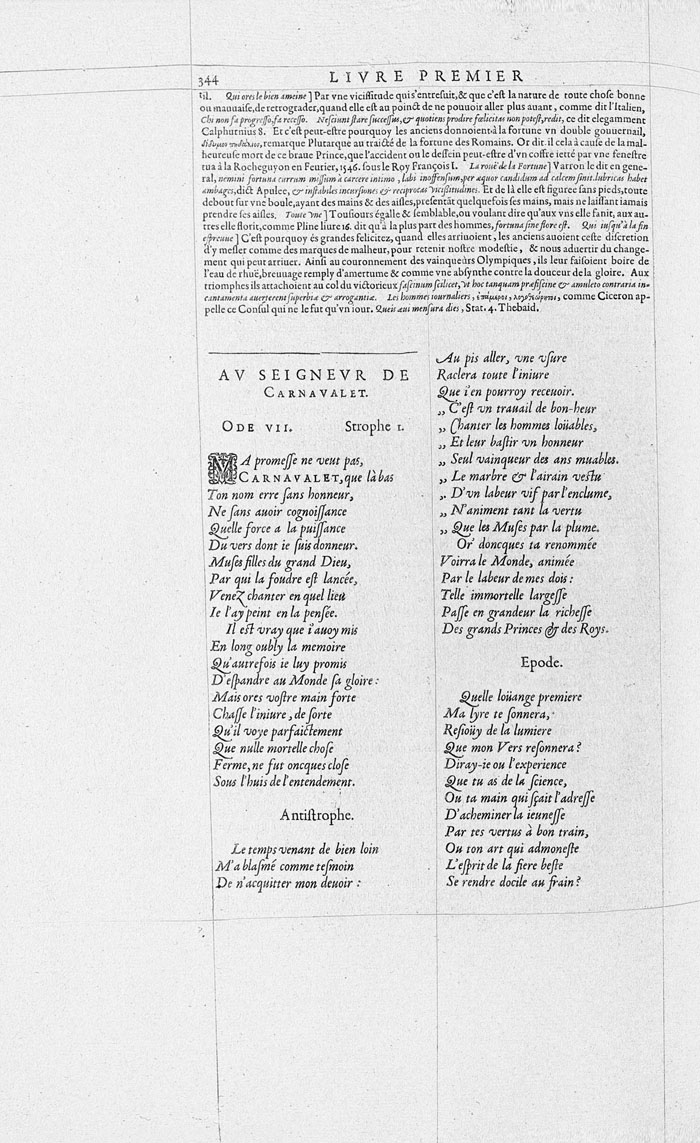 344 LIVRE PREMIER
Qui ores le bien ameine ] Par vne vicissitude qui s'entresuit, & que c'est la nature de toute chose bonne
ou mauuaise, de retrograder, quand elle est au poinct de ne pouuoir aller plus auant, comme dit l'Italien,
Chi non fa progresso, fa recesso. Nesciunt stare successus, & quotiens prodire fœlicitas non potest, redit, ce dit elegamment
Calphurnius 8. Et c'est peut-estre pourquoy les anciens donnoient à la fortune vn double gouuernail,
remarque Plutarque au traicté de la fortune des Romains. Or dit il cela à cause de la mal-
heureuse mort de ce braue Prince, que l'accident ou le dessein peut-estre d'vn coffre ietté par vne fenestre
tua à la Rocheguyon en Feurier, 1546. sous le Roy François I. La rouë de la Fortune ] Varron le dit en gene-
ral, nemini fortuna currum missum à carcere intimo, labi inoffensum, per æquor candidum ad calcem sinit. lubricas habet
ambages, dict Apulee, & instabiles incursiones & reciprocas vicissitudines. Et de là elle est figuree sans pieds, toute
debout sur vne boule, ayant des mains & des aisles, presentāt quelquefois ses mains, mais ne laissant iamais
prendre ses aisles. Toute vne ] Tousiours égalle & semblable, ou voulant dire qu'aux vns elle fanit, aux au-
tres elle florit, comme Pline liure 16. dit qu'à la plus part des hommes, fortuna sine flore est. Qui iusqu'à la fin
espreuue ] C'est pourquoy és grandes felicitez, quand elles arriuoient, les anciens auoient ceste discretion
d'y mesler comme des marques de malheur, pour retenir nostre modestie, & nous aduertir du change-
ment qui peut arriuer. Ainsi au couronnement des vainqueurs Olympiques, ils leur faisoient boire de
l'eau de rhuë, breuuage remply d'amertume & comme vne absynthe contre la douceur de la gloire. Aux
triomphes ils attachoient au col du victorieux fascinum scilicet, vt hoc tanquam præfiscine & amuleto contraria in-
cantamenta auerterent superbiæ & arrogantiæ. Les hommes iournaliers, comme Ciceron ap-
pelle ce Consul qui ne le fut qu'vn iour. Queis æui mensura dies, Stat. 4. Thebaid.
AV SEIGNEVR DE
CARNAVALET.
ODE VII. Strophe I.
MA promesse ne veut pas,
CARNAVALET, que là bas
Ton nom erre sans honneur,
Ne sans auoir cognoissance
Quelle force a la puissance
Du vers dont ie suis donneur.
Muses filles du grand Dieu,
Par qui la foudre est lancée,
Venez chanter en quel lieu
Ie l'ay peint en la pensée.
Il est vray que i'auoy mis
En long oubly la memoire
Qu'autrefois ie luy promis
D'espandre au Monde sa gloire:
Mais ores vostre main forte
Chasse l'iniure, de sorte
Qu'il voye parfaictement
Que nulle mortelle chose
Ferme, ne fut oncques close
Sous l'huis de l'entendement.
Antistrophe.
Le temps venant de bien loin
M'a blasmé comme tesmoin
De n'acquitter mon deuoir:
Au pis aller, vne vsure
Raclera toute l'iniure
Que i'en pourroy receuoir.
„ C'est vn trauail de bon-heur
„ Chanter les hommes loüables,
„ Et leur bastir vn honneur
„ Seul vainqueur des ans muables.
„ Le marbre & l'airain vestu
„ D'vn labeur vif par l'enclume,
„ N'animent tant la vertu
„ Que les Muses par la plume.
Or' doncques ta renommée
Voirra le Monde, animée
Par le labeur de mes dois:
Telle immortelle largesse
Passe en grandeur la richesse
Des grands Princes & des Roys.
Epode.
Quelle loüange premiere
Ma lyre te sonnera,
Resioüy de la lumiere
Que mon Vers resonnera?
Diray-ie ou l'experience
Que tu as de la science,
Ou ta main qui sçait l'adresse
D'acheminer la ieunesse
Par tes vertus à bon train,
Ou ton art qui admoneste
L'esprit de la fiere beste
Se rendre docile au frain?